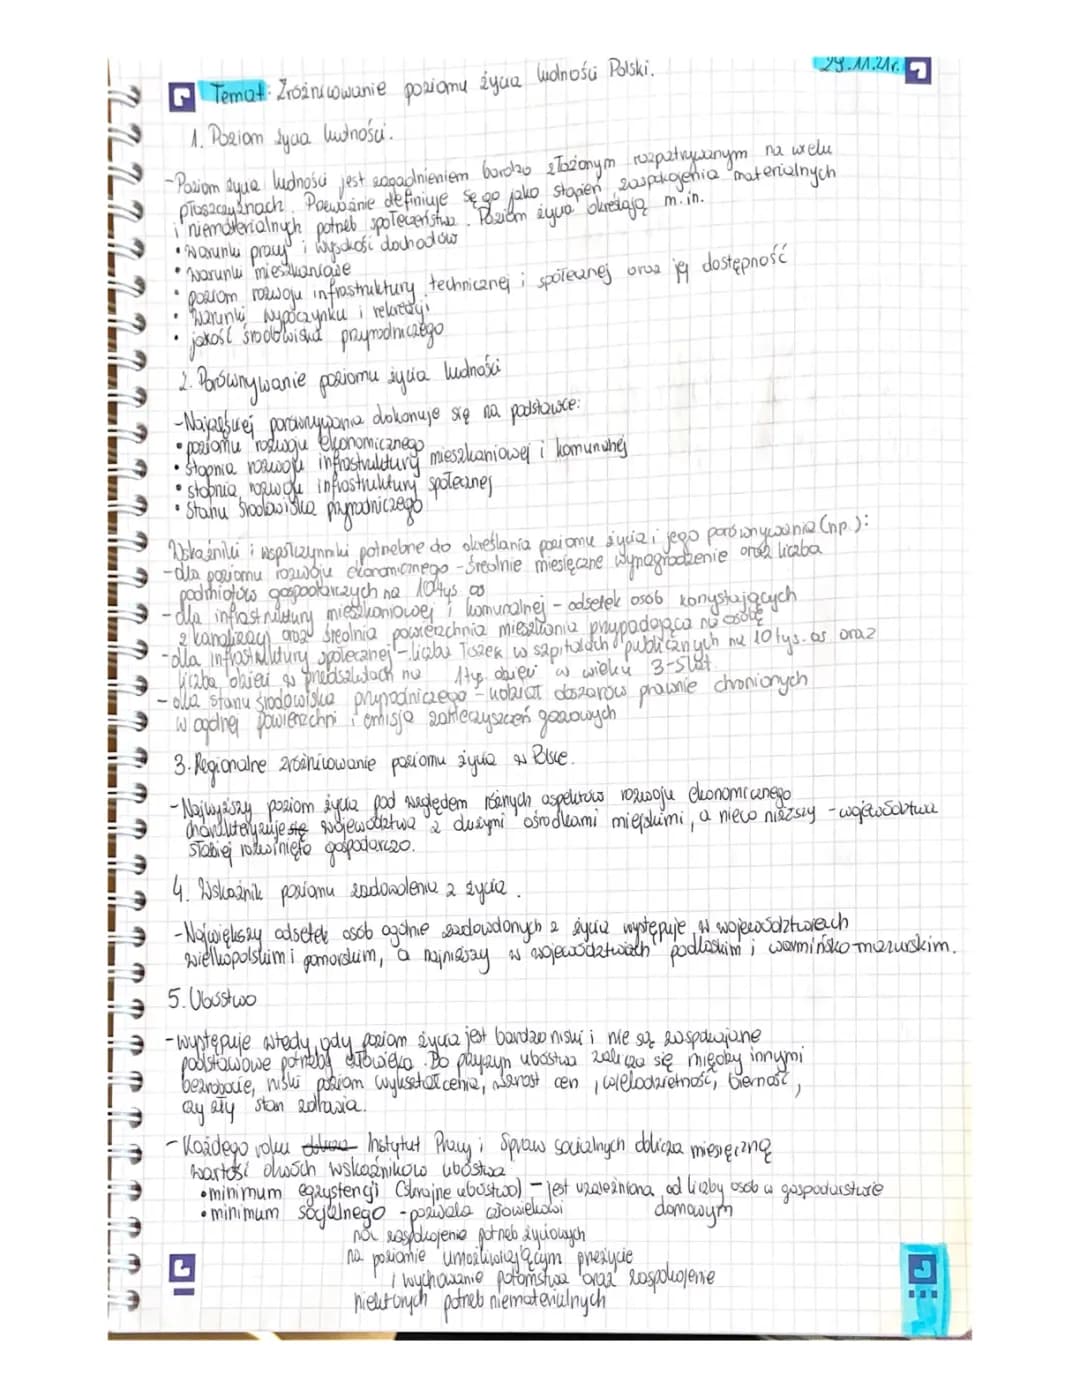 29.11.21r.
Temat: Zróżnicowanie poziomu życia ludności Polski.
1. Poziom życia ludności.
-Poziom życia ludności jest zagadnieniem bardzo złożonym rozpatrywanym na wielu
płaszczyznach. Poważnie definiuje się go jako stopień zaspokojenia materialnych
i niematerialnych potrzeb społeczeństwa. Poziom życia określają m.in.
• warunki pracy i wysokość dochodów
• warunki mieszkaniowe
• poziom rozwoju infrastruktury technicznej i społecznej oraz jej dostępność
• warunki wypoczynku i rekreacji
• jakość środowiska przyrodniczego
2. Porównywanie poziomu życia ludności
-Najczęściej porównywania dokonuje się na podstawie:
• poziomu rozwoju ekonomicznego
• stopnia rozwoju infrastruktury mieszkaniowej i komunalnej
• stopnia rozwoju infrastruktury społecznej
• stanu środowiska przyrodniczego
Wskaźniki i współczynniki potrzebne do określania poziomu życia i jego porównywania (np.):
-dla poziomu rozwoju ekonomicznego - średnie miesięczne wynagrodzenie oraz liczba
podmiotów gospodarczych na 10 tys. os
-dla infrastruktury mieszkaniowej i komunalnej - odsetek osób korzystających
z kanalizacji oraz średnia powierzchnia mieszkania przypadająca na osobę
-dla infrastruktury społecznej - liczba łóżek w szpitalach publicznych na 10 tys. os. oraz
liczba dzieci w przedszkolach na 1 tys. dzieci w wieku 3-5 lat.
-dla stanu środowiska przyrodniczego - udział obszarów prawnie chronionych
w ogólnej powierzchni i emisja zanieczyszczeń gazowych
3. Regionalne zróżnicowanie poziomu życia w Polsce.
-Najwyższy poziom życia pod względem różnych aspektów rozwoju ekonomicznego
charakteryzuje się województwa z dużymi ośrodkami miejskimi, a nieco niższy - województwa
słabiej rozwinięte gospodarczo.
4. Wskaźnik poziomu zadowolenia z życia.
-Największy odsetek osób ogólnie zadowolonych z życia występuje w województwach
wielkopolskim i pomorskim, a najniższy w województwach podlaskim i warmińsko-mazurskim.
5. Ubóstwo
-występuje wtedy, gdy poziom życia jest bardzo niski i nie są zaspokajane
podstawowe potrzeby człowieka. Do przyczyn ubóstwa zalicza się między innymi
bezrobocie, niski poziom wykształcenia, wzrost cen, wielodzietność, bierność,
czy zły stan zdrowia.
- Każdego roku Instytut Pracy i Spraw socialnych oblicza miesięczną
wartość dwóch wskaźników ubóstwa
• minimum egzystencji (skrajne ubóstwo) - jest uzależniona od liczby osób w gospodarstwie
domowym
• minimum socjalnego - pozwala człowiekowi
na zaspokojenie potrzeb życiowych
na poziomie umożliwiającym przeżycie
i wychowanie potomstwa oraz zaspokojenie
niektórych potrzeb niematerialnych